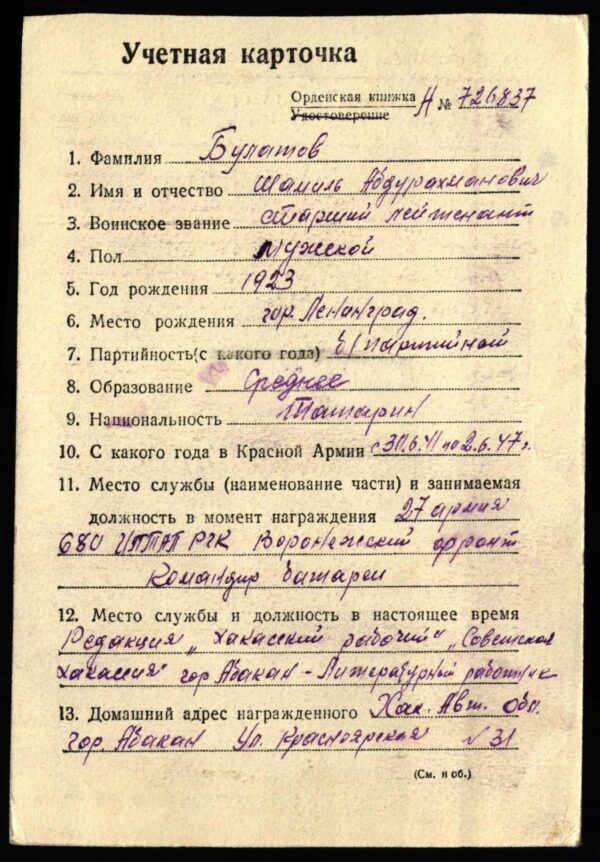 Учетная карточка
Орденская книжка Н № 726837
Удостоверение
1. Фамилия Булатов
2. Имя и отчество Шамиль Абдурахманович
3. Воинское звание старший лейтенант
4. Пол мужской
5. Год рождения 1923
6. Место рождения гор. Ленинград.
7. Партийность (с какого года) б/партийной
8. Образование Среднее
9. Национальность Татарин
10. С какого года в Красной Армии с 30.6.41 по 2.6.47 г.
11. Место службы (наименование части) и занимаемая
должность в момент награждения 27 армия
680 ИПТАП РГК Воронежский фронт
Командир батареи
12. Место службы и должность в настоящее время
Редакция „Хакасский рабочий" „Советская
Хакассия" гор Абакан - Литературный работник
13. Домашний адрес награжденного Хак. Авт. обл.
гор. Абакан Ул. Красноярская № 31
(См. н об.)